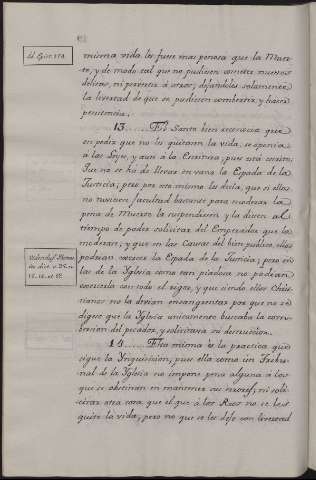 misma vida les fuese mas penosa que la Muer-
te, y de modo tal que no pudiesen cometer nuevos
delitos, ni pervertir á otros; dejandoles solamente
la livertad de que se pudiesen combertir, y hacer
penitencia.
13. El Santo bien conocia que
en pedir que no les quitaran la vida, se oponia
á las Leyes, y aun á la Escritura, pues está escrito:
Que no se há de llevar en vano la Espada de la
Justicia; pero por eso mismo les decia, que si ellos
no tuviesen facultad bastante para moderar la
pena de Muerte la suspendiesen y la diesen al
tiempo de poder solicitar del Emperador que la
moderara; y que en las Causas del bien publico, ellos
podrian exercer la Espada de la Justicia; pero en
las de la Iglesia como tan piadosa no podrian
executarla con todo el rigor, y que siendo ellos Chris-
tianos no la devian ensangrentar por que no se
digese que la Iglesia unicamente buscaba la corru-
pcion del pecador, y solicitaria su destruccion.
14. Esta misma es la practica que
sigue la Ynquisicion, pues ella como un Tribu-
nal de la Iglesia no impone pena alguna á los
que se obstinan en mantener sus errores, ni soli-
cita otra cosa que el que á los Reos no se les
quite la vida, pero que se les deje con livertad